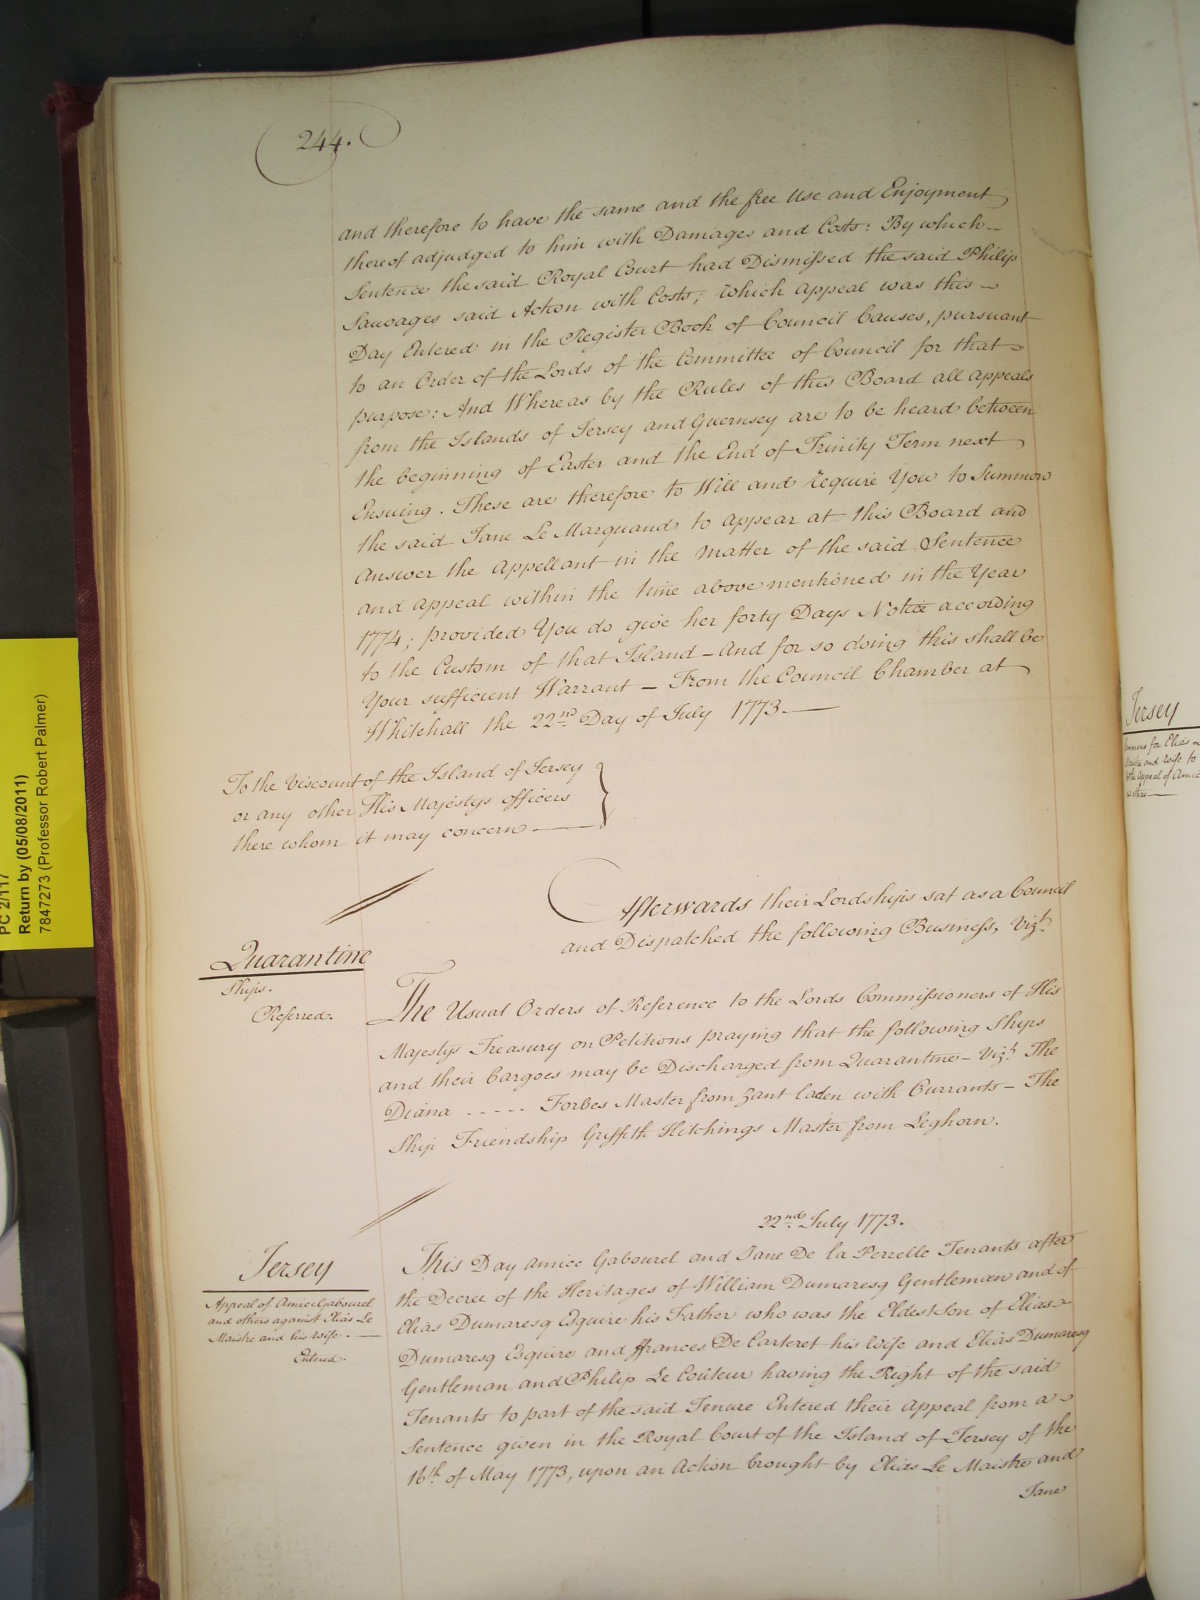 244.
and therefore to have the same and the free Use and Enjoyment
thereof adjudged to him with Damages and Costs: By which
Sentence the said Royal Court had Dismissed the said Philip
Sauvages said Action with Costs; which Appeal was this
Day Entered in the Register Book of Council Causes, pursuant
to an Order of the Lords of the Committee of Council for that
purpose: And Whereas by the Rules of this Board all Appeals
from the Islands of Jersey and Guernsey are to be heard between
the beginning of Easter and the End of Trinity Term next
Ensuing. These are therefore to Will and require You to Summon
the said Jane Le Marquand to appear at this Board and
Answer the Appellant in the Matter of the said Sentence
and Appeal within the time above mentioned in the Year
1774; provided You do give her forty Days Notice according
to the Custom of that Island - And for so doing this shall be
Your sufficient Warrant - From the Council Chamber at
Whitehall the 22nd Day of July 1773.
To the Viscount of the Island of Jersey
or any other His Majestys officers
there whom it may concern
Afterwards their Lordships sat as a Council
and Dispatched the following Business, Vizt.
Quarantine
Ships.
Referred.
The Usual Orders of Reference to the Lords Commissioners of His
Majestys Treasury on Petitions praying that the following Ships
and their Cargoes may be Discharged from Quarantine - Vizt. The
Diana - - - - - Forbes Master from Zant laden with Currants - The
Ship Friendship Griffith Hitchings Master from Leghorn.
22nd July 1773.
Jersey
Appeal of Amice Gabourel
and others against Elias Le
Maistre and his wife.
Entered.
This Day Amice Gabourel and Jane De la Perrelle Tenants after
the Decree of the Heritages of William Dumaresq Gentleman and of
Elias Dumaresq Esquire his Father who was the Eldest Son of Elias
Dumaresq Esquire and ffrances De Carteret his wife and Elias Dumaresq
Gentleman and Philip Le Coûteur having the Right of the said
Tenants to part of the said Tenure Entered their Appeal from a
Sentence given in the Royal Court of the Island of Jersey of the
16th of May 1773, upon an Action brought by Elias Le Maistre and
Jane
Jersey
PC 2/117
Return by (05/08/2011)
7847273 (Professor Robert Palmer)